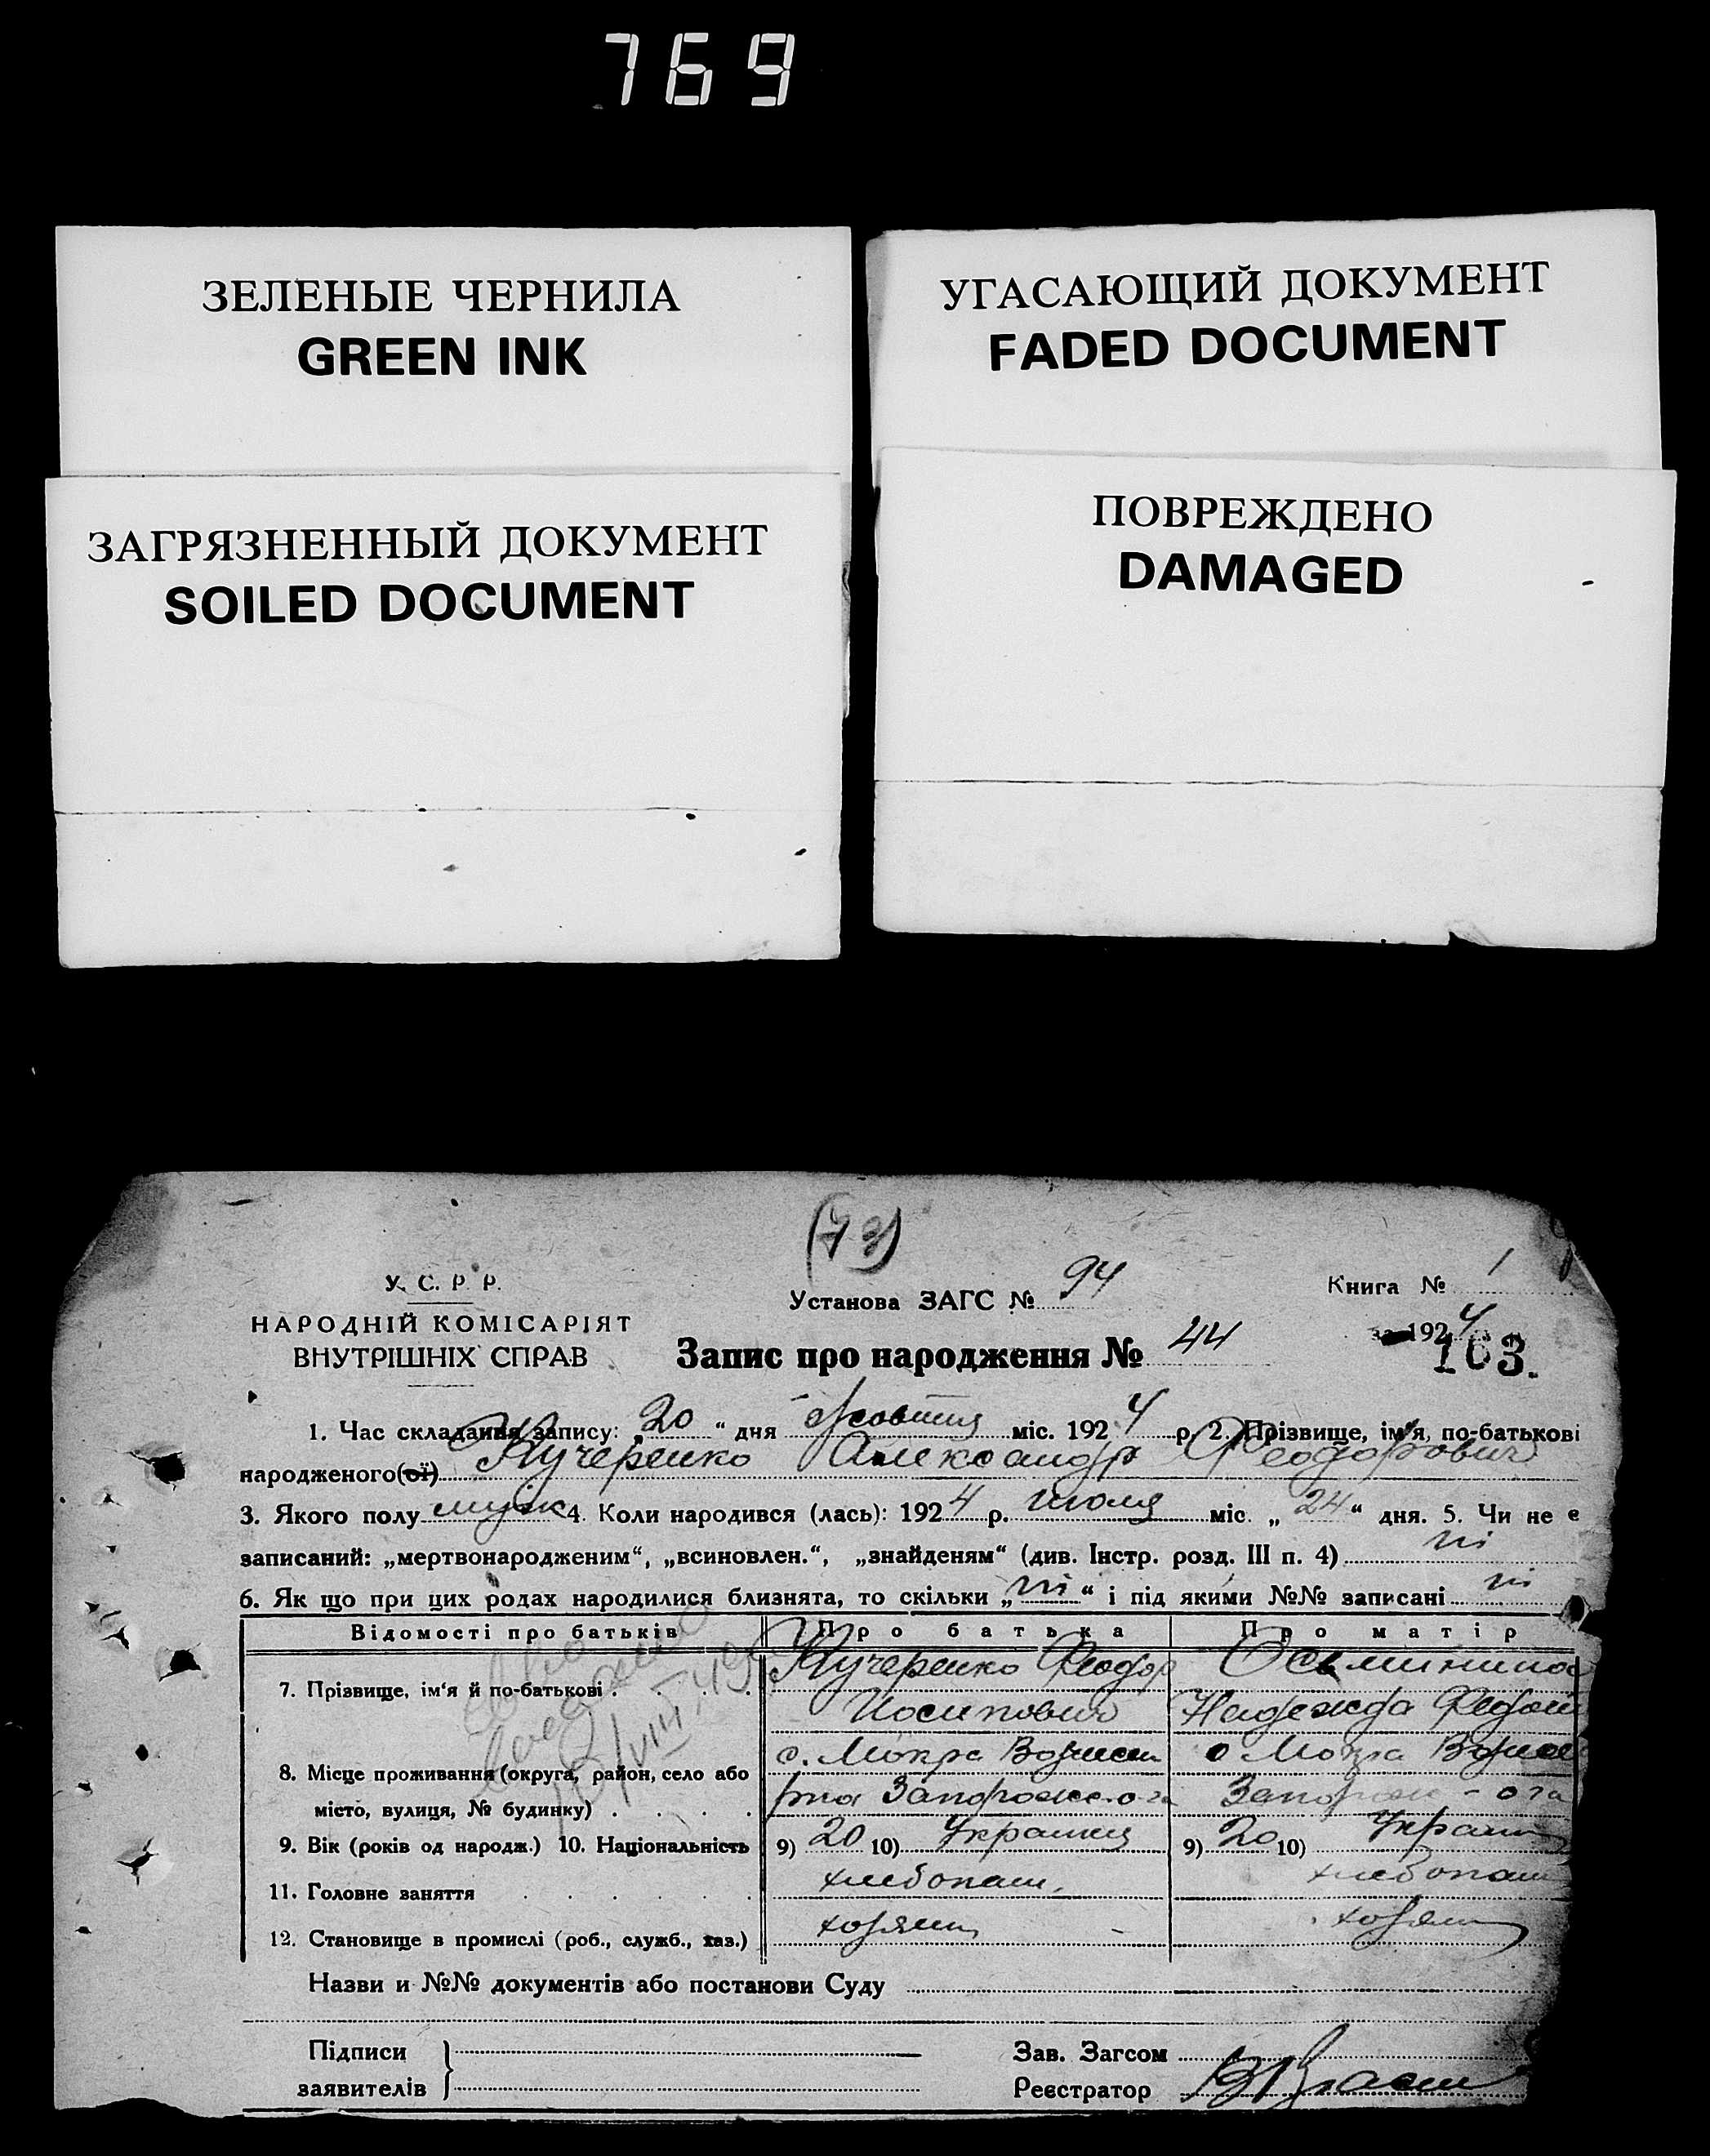 769
ЗЕЛЕНЫЕ ЧЕРНИЛА
GREEN INK
УГАСАЮЩИЙ ДОКУМЕНТ
FADED DOCUMENT
ЗАГРЯЗНЕННЫЙ ДОКУМЕНТ
SOILED DOCUMENT
ПОВРЕЖДЕНО
DAMAGED
У. С. Р. Р.
НАРОДНІЙ КОМІСАРІЯТ
ВНУТРІШНІХ СПРАВ
Установа ЗАГС № 94
Книга № 1
за 1924
163.
Запис про народження № 44
1. Час складання запису: „20“ дня жовтня міс. 1924 р. 2. Прізвище, ім'я, по-батькові
народженого(ої) Кучеренко Александр Феодорович
3. Якого полу муж 4. Коли народився (лась): 1924 р. июля міс. „24“ дня. 5. Чи не є
записаний: „мертвонародженим“, „всиновлен.“, „знайденям“ (див. Інстр. розд. III п. 4) ні
6. Як що при цих родах народилися близнята, то скільки „ні“ і під якими №№ записані ні
Відомості про батьків Про батька Про матір
7. Прізвище, ім'я й по-батькові Кучеренко Феодор
Иосипович Надежда
8. Місце проживання (округа, район, село або с. Мокра
місто, вулиця, № будинку)
9. Вік (років од народж.) 10. Національність 9) 20 10) 9) 20 10)
11. Головне заняття хлебопаш. хлебопаш
12. Становище в промислі (роб., служб., хаз.)
Назви и №№ документів або постанови Суду
Підписи
заявителів
Зав. Загсом
Реєстратор